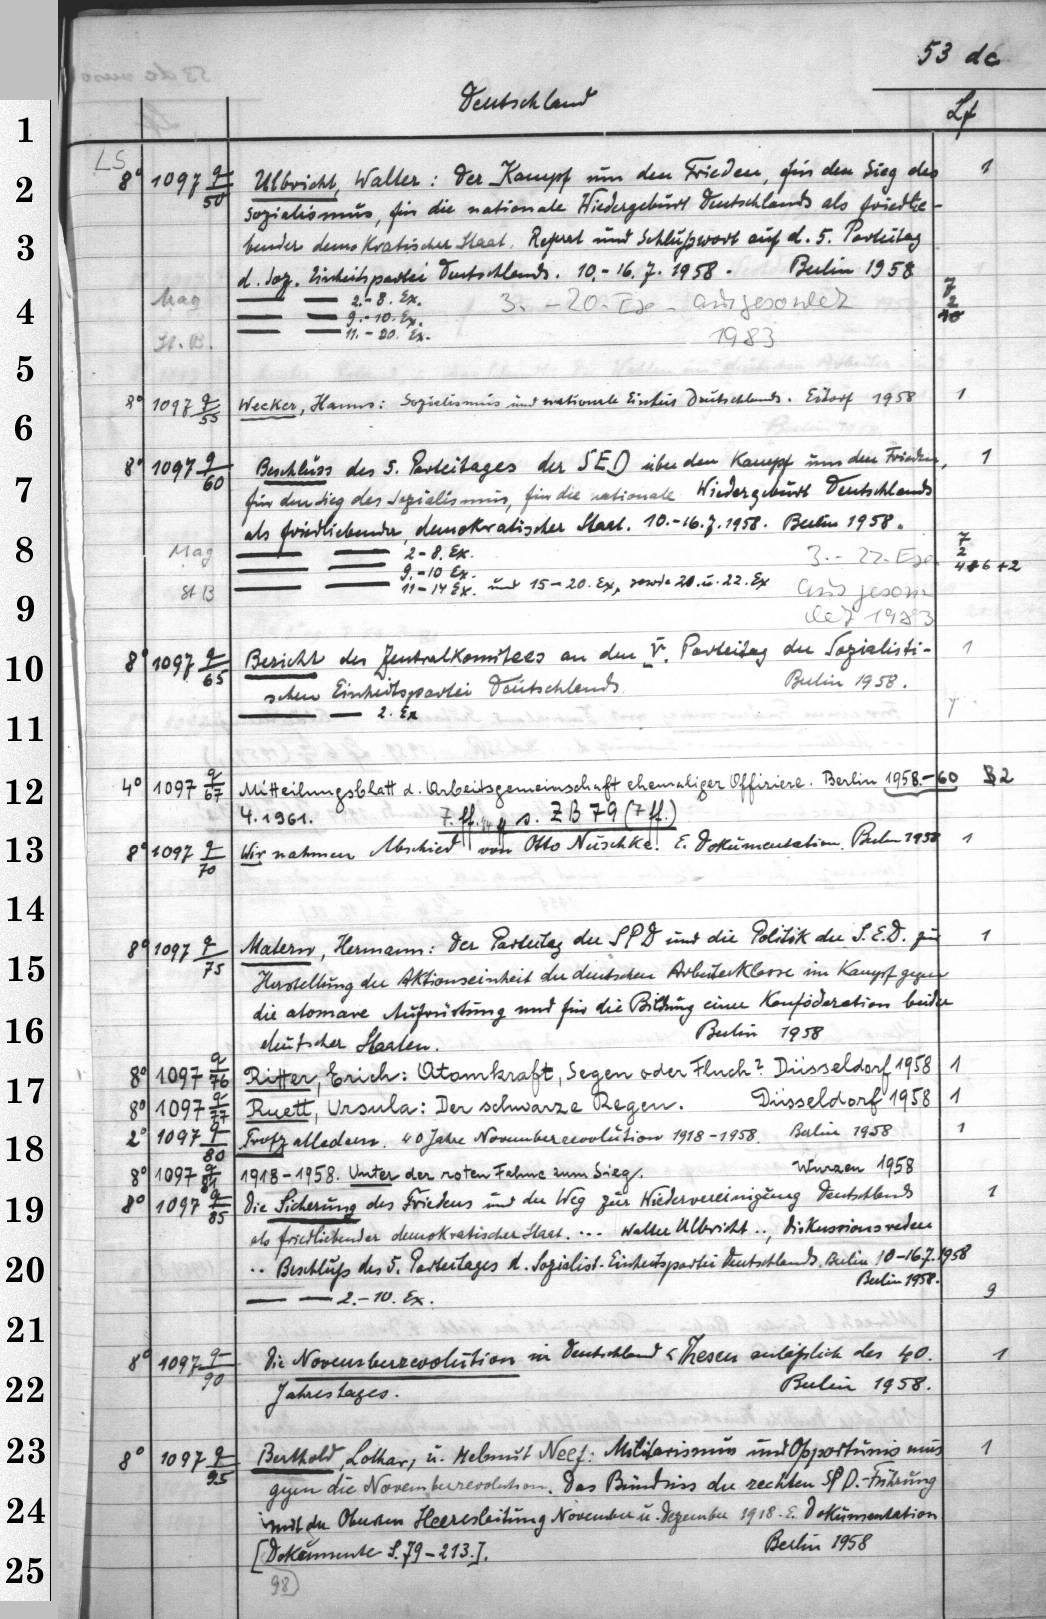 53 dc
Deutschland
Lf
1
LS
2 8° 1097 q/50 Ulbricht, Walter: Der Kampf um den Frieden, für den Sieg des 1
Sozialismus, für die nationale Wiedergeburt Deutschlands als friedlie-
3 bender demokratischer Staat. Referat und Schlußwort auf d. 5. Parteitag
d. Soz. Einheitspartei Deutschlands. 10.-16.7.1958. Berlin 1958
Mag — — 2.-8. Ex. 3. - 20. Ex. ausgesondert 7
4 — — 9.-10. Ex. 2
St. B. — — 11.-20. Ex. 1983 10
5
8° 1097 q/55 Wecker, Hanns: Sozialismus und nationale Einheit Deutschlands. Eitorf 1958 1
6
8° 1097 q/60 Beschluss des 5. Parteitages der SED über den Kampf um den Frieden, 1
7 für den Sieg des Sozialismus, für die nationale Wiedergeburt Deutschlands
als friedliebender, demokratischer Staat. 10.-16.7.1958. Berlin 1958.
8 Mag — — 2-8. Ex. 3.- 22. Ex. 7
— — 9.-10 Ex. 2
St B — — 11-14 Ex. und 15-20. Ex, sowie 21. u. 22. Ex ausgeson 4+6+2
9 dert 1983
10 8° 1097 q/65 Bericht des Zentralkomitees an den V. Parteitag der Sozialisti- 1
schen Einheitspartei Deutschlands. Berlin 1958.
— — 2. Ex 1
11
12 4° 1097 q/67 Mitteilungsblatt d. Arbeitsgemeinschaft ehemaliger Offiziere. Berlin 1958-60 2
4.1961. 7.ff. s. ZB 79 (7 ff.)
13 8° 1097 q/70 Wir nahmen Abschied von Otto Nuschke. E. Dokumentation. Berlin 1958 1
14
8° 1097 q/75 Matern, Hermann: Der Parteitag der SPD und die Politik der S.E.D. zur 1
15 Herstellung der Aktionseinheit der deutschen Arbeiterklasse im Kampf gegen
die atomare Aufrüstung und für die Bildung einer Konföderation beider
16 deutscher Staaten. Berlin 1958
8° 1097 q/76 Ritter, Erich: Atomkraft, Segen oder Fluch? Düsseldorf 1958 1
17 8° 1097 q/77 Ruett, Ursula: Der schwarze Regen. Düsseldorf 1958 1
18 2° 1097 q/80 Trotz alledem. 40 Jahre Novemberrevolution 1918-1958. Berlin 1958 1
8° 1097 q/81 1918-1958. Unter der roten Fahne zum Sieg. Wurzen 1958
19 8° 1097 q/85 Die Sicherung des Friedens und der Weg zur Wiedervereinigung Deutschlands 1
als friedliebender demokratischer Staat. ... Walter Ulbricht .., Diskussionsreden
20 .. Beschluß des 5. Parteitages d. Sozialist. Einheitspartei Deutschlands. Berlin 10-16.7.1958
Berlin 1958.
— — 2.-10. Ex. 9
21
8° 1097 q/90 Die Novemberrevolution in Deutschland. Thesen anläßlich des 40. 1
22 Jahrestages. Berlin 1958.
23 8° 1097 q/95 Berthold, Lothar, u. Helmut Neef: Militarismus und Opportunismus 1
gegen die Novemberrevolution. Das Bündnis der rechten SPD.-Führung
24 mit der Obersten Heeresleitung November u. Dezember 1918. E. Dokumentation
[Dokumente S. 79-213.]. Berlin 1958
25 98)